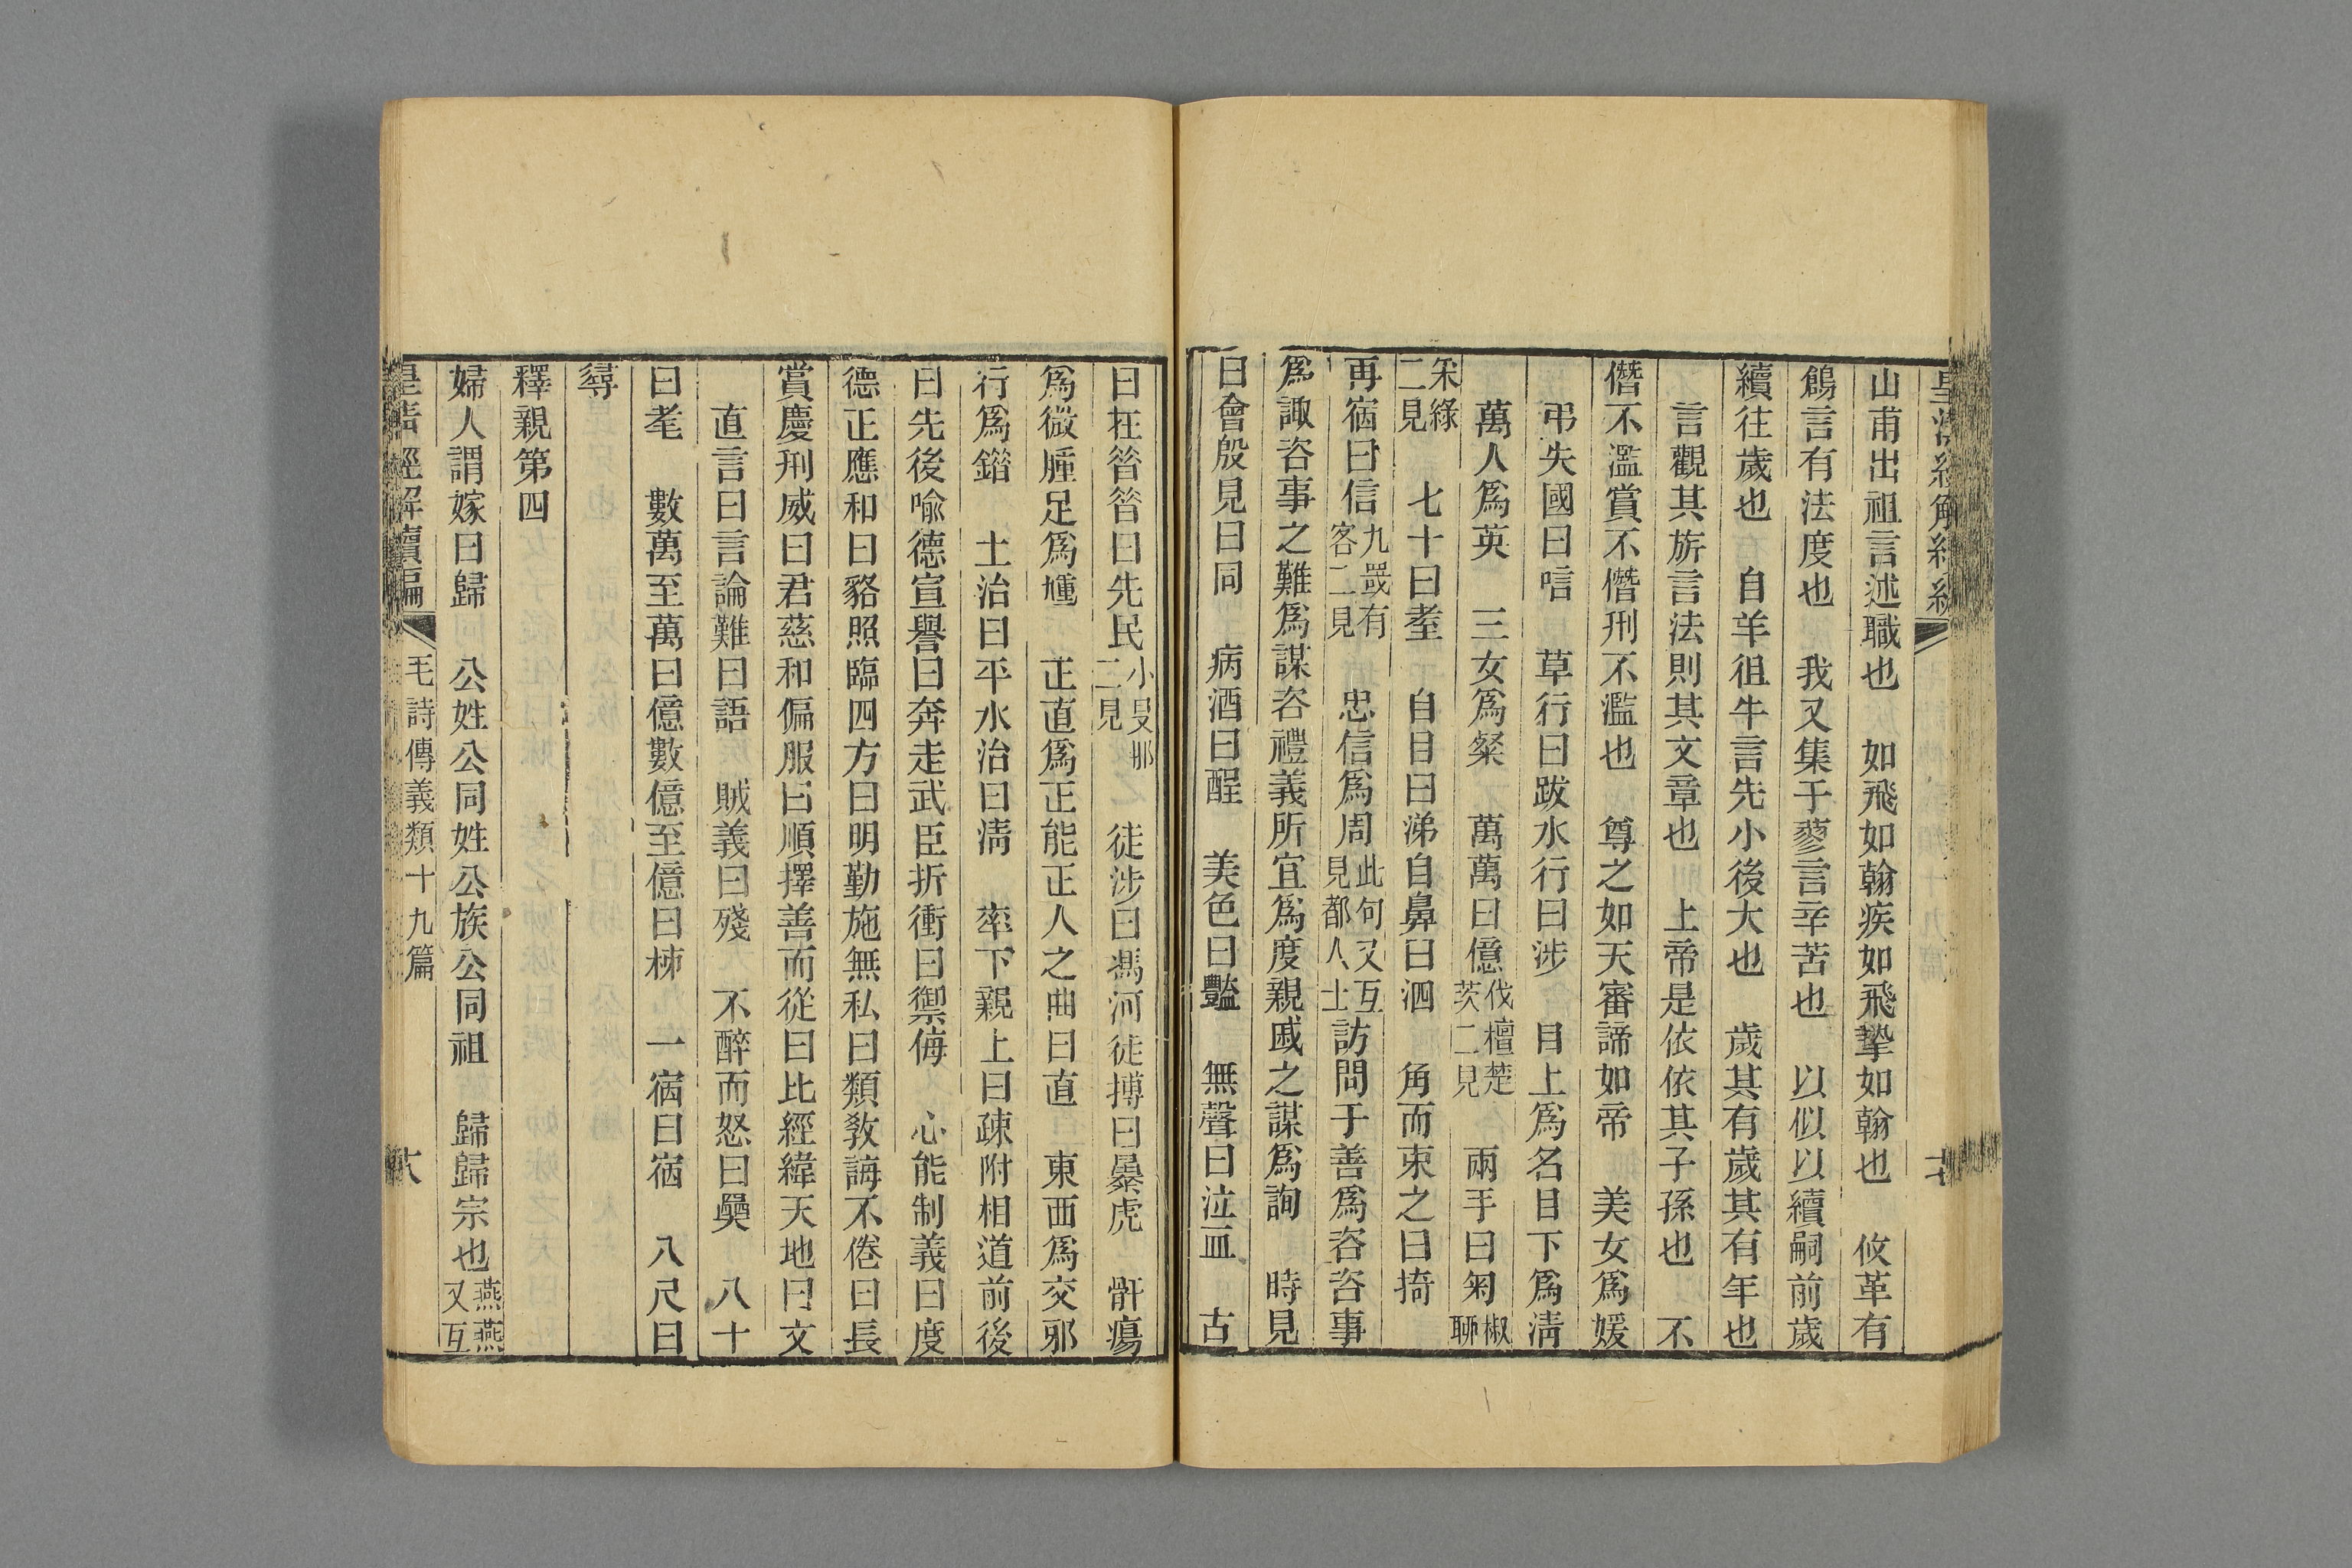 山甫出祖言述職也　如飛如翰疾如飛摯如翰也　攸革有
鶬言有法度也　我又集于蓼言辛苦也　以似以續嗣前歲
續往歲也　自羊徂牛言先小後大也　歲其有歲其有年也
言觀其旂言法則其文章也　上帝是依依其子孫也　不
僭不濫賞不僭刑不濫也　尊之如天審諦如帝　美女爲媛
弔失國曰唁　草行曰跋水行曰涉　目上爲名目下爲淸
萬人爲英　三女爲粲　萬萬曰億伐檀楚茨二見　兩手曰匊椒聊
采綠二見　七十曰耋　自目曰涕自鼻曰泗　角而束之曰掎
再宿曰信九罭有客二見　忠信爲周此句又互見都人士訪問于善爲咨咨事
爲諏咨事之難爲謀咨禮義所宜爲度親戚之謀爲詢　時見
曰會殷見曰同　病酒曰酲　美色曰豔　無聲曰泣血　古
曰在昔昔曰先民小旻那二見　徒涉曰馮河徒搏曰暴虎　骭瘍
爲微腫足爲尰　正直爲正能正人之曲曰直　東西爲交邪
行爲錯　土治曰平水治曰淸　率下親上曰疎附相道前後
曰先後喩德宣譽曰奔走武臣折衝曰禦侮　心能制義曰度
德正應和曰貉照臨四方曰明勤施無私曰類敎誨不倦曰長
賞慶刑威曰君慈和偏服曰順擇善而從曰比經緯天地曰文
直言曰言論難曰語　賊義曰殘　不醉而怒曰奰　八十
曰耄　數萬至萬曰億數億至億曰秭　一宿曰宿　八尺曰
尋
釋親第四
婦人謂嫁曰歸　公姓公同姓公族公同祖　歸歸宗也燕燕又互
皇淸經解續編　毛詩傳義類十九篇